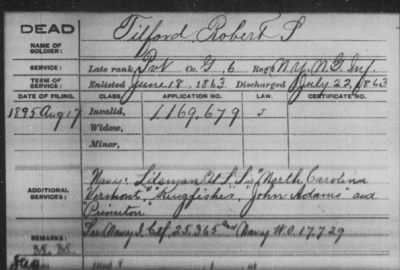 DEAD
NAME OF SOLDIER:
Tilford Robert S
SERVICE:
Late rank Pvt Co. G, 6 Reg't N.Y. N.G. Inf.
TERM OF SERVICE:
Enlisted June 18, 1863 Discharged July 22, 1863
DATE OF FILING. CLASS. APPLICATION NO. LAW. CERTIFICATE NO.
1895 Aug 17 Invalid, 1169.679 J
Widow,
Minor,
ADDITIONAL SERVICES:
Navy: U.S. S. "North Carolina
Vermont," "Kingfisher" "John Adams" and
Princeton
REMARKS:
See Navy S. Ctf. 25,365 and Navy W.O. 17,729